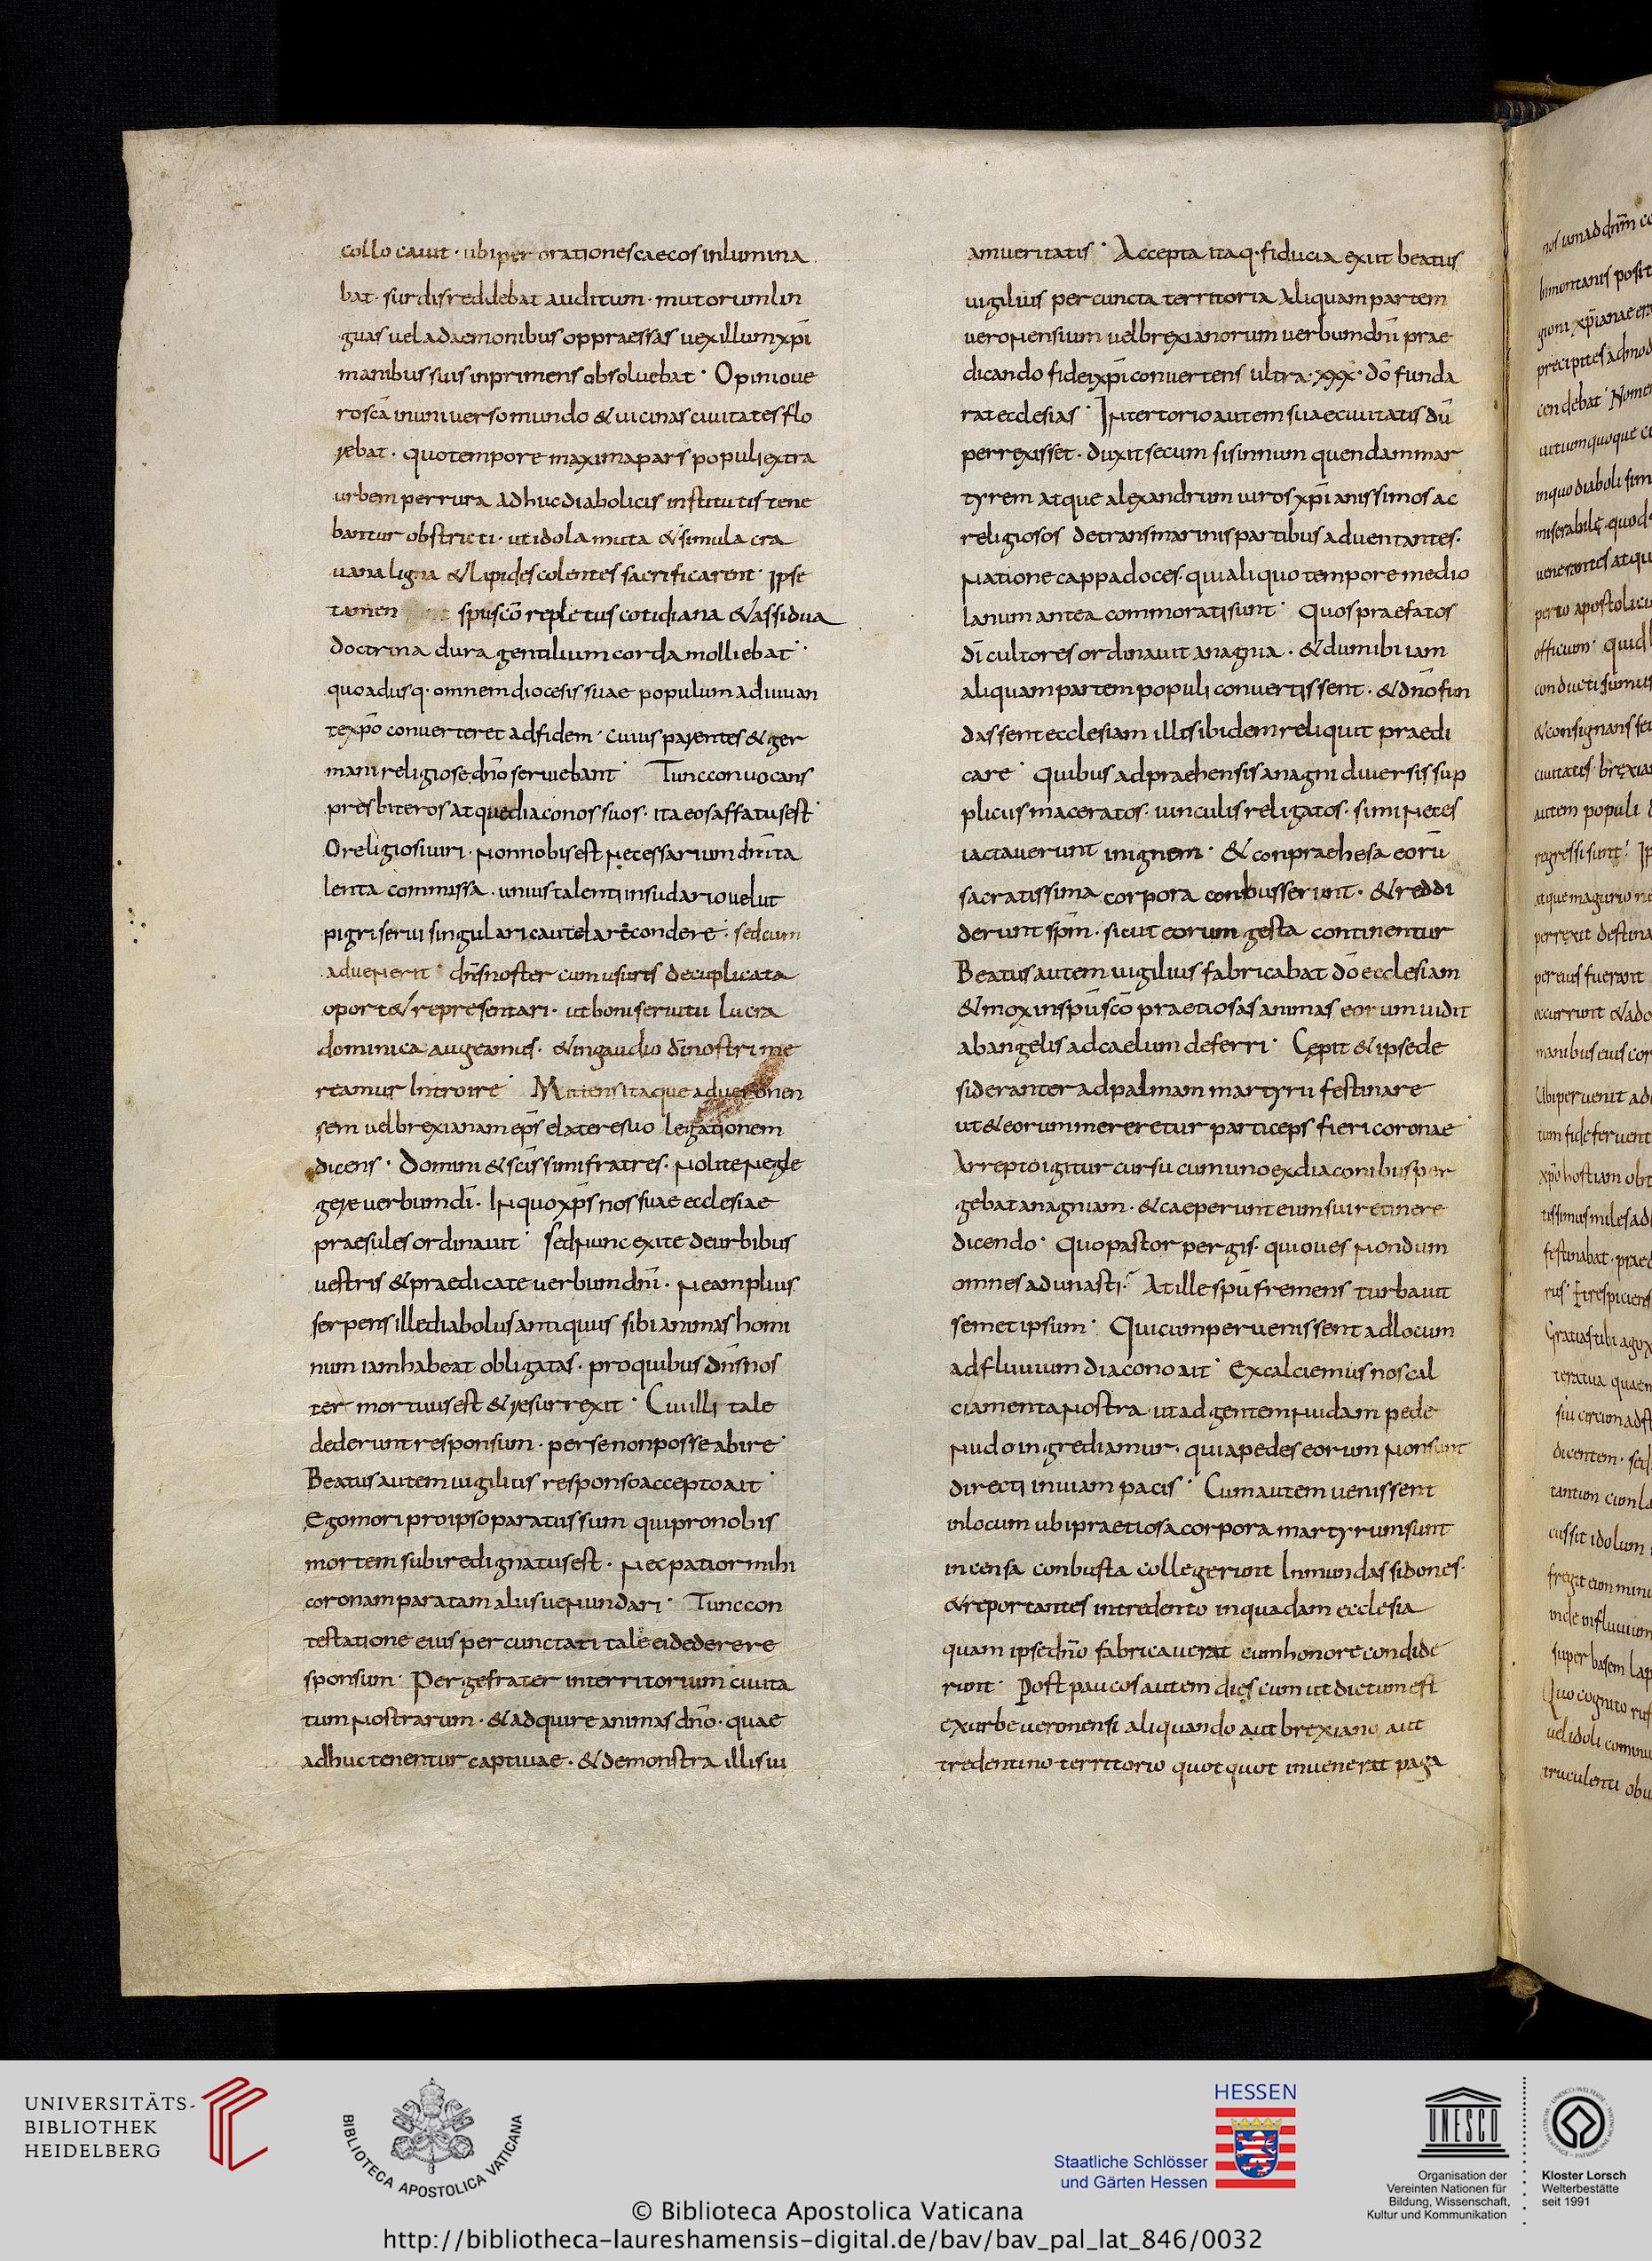 collo cauit · ubi per orationes caecos inlumina
bat · surdis reddebat auditum · mutorum lin
guas uel a daemonibus oppraessas uexillum xp̄i
manibus suis inprimens obsoluebat · Opinio ue
ro sc̄a in uniuerso mundo & uicinas ciuitates flo
rebat · quo tempore maxima pars populi extra
urbem per rura adhuc diabolicis institutis tene
bantur obstricti · ut idola muta & simulacra
uana ligna & lapides colentes sacrificarent · Ipse
tamen spu sc̄o repletus cotidiana & assidua
doctrina dura gentilium corda molliebat ·
quo adusq · omnem diocesis suae populum adiuuan
te xp̄o conuerteret ad fidem · cuius parentes & ger
mani religiose dn̄o seruiebant · Tunc conuocans
presbiteros atque diaconos suos · ita eos affatus est ·
O religiosi uiri · Non nobis est necessarium dn̄i ta
lenta commissa · unius talenti in sudario uelut
pigri serui singulari cautela recondere · sed cum
aduenerit · dn̄s noster cum usuris decuplicata
oport& representari · ut boni seruitii lucra
dominica augeamus · & in gaudio dn̄i nostri me
reamur Introire · Mittens itaque ad ueronen
sem uel brexianam ep̄s elatere suo legationem
dicens · Domini & sc̄issimi fratres · Nolite negle
gere uerbum dī · In quo xp̄s nos suae ecclesiae
praesules ordinauit · Sed nunc exite de urbibus
uestris & praedicate uerbum dn̄i · Ne amplius
serpens ille diabolus antiquus sibi animas homi
num iam habeat obligatas · pro quibus dn̄s nos
ter mortuus est & resurrexit · Cui illi tale
dederunt responsum · per se non posse abire ·
Beatus autem uigilius responso accepto ait ·
Ego mori pro ipso paratus sum qui pro nobis
mortem subire dignatus est · Nec patior mihi
coronam paratam aliis uenundari · Tunc con
testatione eius percunctati tale ei dedere re
sponsum · Perge frater in territorium ciuita
tum nostrarum · & adquire animas dn̄o · quae
adhuc tenentur captiuae · & demonstra illis ui
am ueritatis · Accepta itaq · fiducia exiit beatus
uigilius per cuncta territoria Aliquam partem
ueronensium uel brexianorum uerbum dn̄i prae
dicando fidei xp̄i conuertens ultra · xxx · dō funda
rat ecclesias · In tertorio autem suae ciuitatis dū
perrexisset · duxit secum sisinnum quendam mar
tyrem atque alexandrum uiros xp̄ianissimos ac
religiosos de transmarinis partibus aduentantes ·
Natione cappadoces · qui aliquo tempore medio
lanum antea commorati sunt · Quos praefatos
dī cultores ordinauit anagnia · & dum ibi iam
aliquam partem populi conuertissent · & dn̄o fun
dassent ecclesiam illis ibidem reliquit praedi
care · Quibus adpraehensis anagni diuersis sup
pliciis maceratos · uinculis religatos · simi netes
iactauerunt in ignem · & conpraehesa eorū
sacratissima corpora conbusserunt · & reddi
derunt sp̄m · sicut eorum gesta continentur
Beatus autem uigilius fabricabat dō ecclesiam
& mox in spū sc̄o praetiosas animas eorum uidit
ab angelis ad caelum deferri · Cępit & ipse de
sideranter ad palmam martyrii festinare
ut & eorum mereretur particeps fieri coronae
Arrepto igitur cursu cum uno ex diaconibus per
gebat anagniam · & caeperunt eum sui retinere
dicendo · Quo pastor pergis · qui oues nondum
omnes adunasti · At ille spū fremens turbauit
semetipsum · Qui cum peruenissent ad locum
ad fluuium diacono ait · Excalciemus nos cal
ciamenta nostra · ut ad gentem nudam pede
nudo ingrediamur · quia pedes eorum non sunt
directi in uiam pacis · Cum autem uenissent
in locum ubi praetiosa corpora martyrum sunt
incensa conbusta collegerunt In mundas sidones ·
& reportantes in tredento in quadam ecclesia
quam ipse dn̄o fabricauerat cum honore condide
runt · Post paucos autem dies cum ut dictum est
ex urbe ueronensi aliquando aut brexiano aut
tredentino territorio quot quot inuenerat paga
UNIVERSITÄTS-
BIBLIOTHEK
HEIDELBERG
BIBLIOTECA APOSTOLICA VATICANA
HESSEN
Staatliche Schlösser
und Gärten Hessen
UNESCO
Organisation der
Vereinten Nationen für
Bildung, Wissenschaft,
Kultur und Kommunikation
Kloster Lorsch
Welterbestätte
seit 1991
© Biblioteca Apostolica Vaticana
http://bibliotheca-laureshamensis-digital.de/bav/bav_pal_lat_846/0032